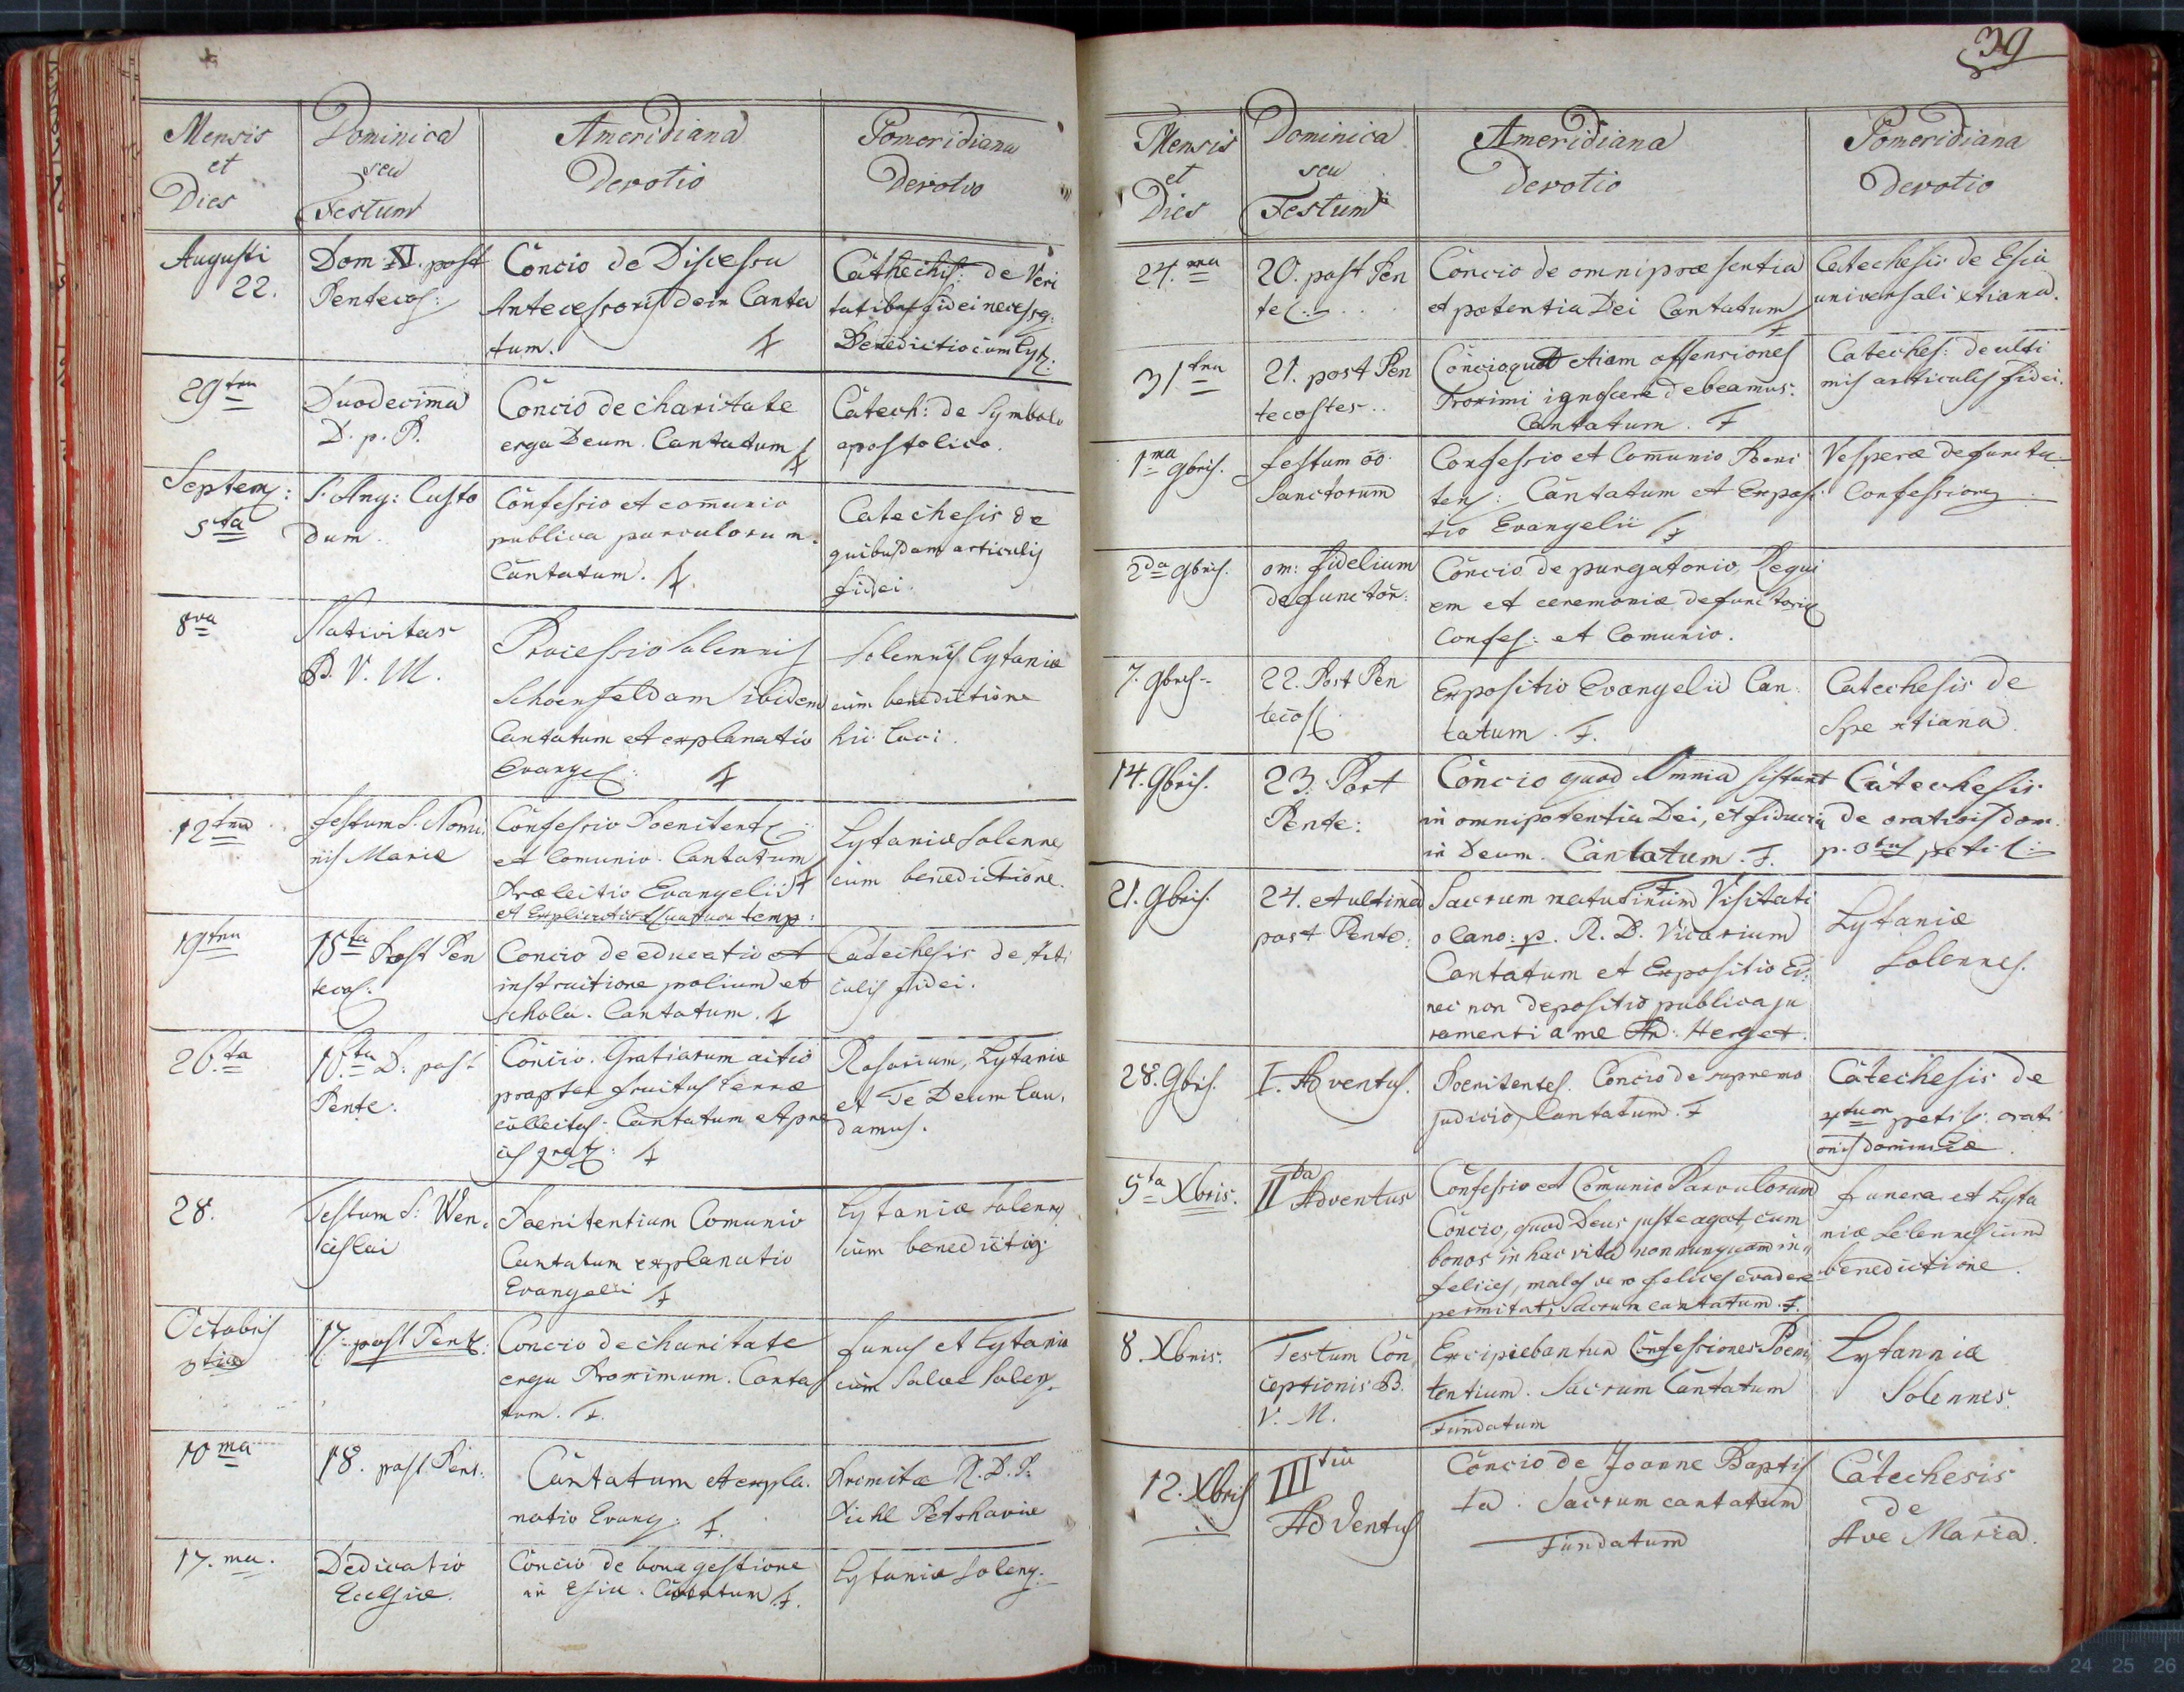 39
Mensis
et
Dies
Dominica
seu
Festum
Ameridiana
Devotio
Pomeridiana
Devotio
Augusti
22.
Dom: XI. post
Pentecos:
Concio de Discessu
Antecessoris dein Canta
tum. F
Cathechis: de Veri
tatibus fidei necessa:
Benedictio cum Lyt:
29tna
Duodecima
D. p. P.
Concio de charitate
erga Deum. Cantatum F
Catech: de Symbolo
apostolico.
Septem:
5ta
F. Ang: Custo
dum.
Confessio et comunio
publica parvulorum.
Cantatum. F.
Catechesis de
quibusdam articulis
fidei.
8va
Nativitas
B. V. M.
Processio solennis
Schoenfeldam ibidem
Cantatum et explanatio
Evangel: F
Solemnes Lytaniæ
cum benedictione
hic Loci.
12tna
festum S. Nomi
nis Mariæ
Confessio Poenitent:
et Comunio. Cantatum
Prælectio Evangelii F
et Explicatio Quatuor temp:
Lytaniæ Solenne
cum benedictione.
19tna
15ta Post Pen
tecos:
Concio de educatio et
instructione prolium et
schola. Cantatum. F
Catechesis de Arti
culis fidei.
26.ta
16.ta D: post
Pente:
Concio. Gratiarum actio
propter fructus terræ
collectos. Cantatum et pre
ces grat: F
Rosarium, Lytaniæ
et Te Deum Lau,
damus.
28.
Festum S: Wen,
ceslai
Poenitentium Comunio
Cantatum explanatio
Evangelii F
Lytaniæ solenn
cum benedictio:
Octobris
3tia
17. post Pent:
Concio de charitate
erga Proximum. Canta
tum. F.
funus et Lytaniæ
cum Salve Solen:
10ma
18. post Pent:
Cantatum et expla.
natio Evang: F.
Primitæ R. D. P.
Pichl Petshaviæ
17.ma.
Dedicatio
Ecclsiæ.
Concio de bona gestione
in Esia. Cantatum F.
Lytaniæ Solen:
Mensis
et
Dies
Dominica
seu
Festum
Ameridiana
Devotio
Pomeridiana
Devotio
24.ma
20. post Pen
te:
Concio de omnipræsentia
et potentia Dei Cantatum F
Catechesis de Esia
universali xtiana.
31tna
21. post Pen
tecostes..
Concio quod etiam offensiones
Proximi ignoscere debeamus.
Cantatum. F
Cateches: de ulti
mis articulis fidei.
1ma 9bris.
festum oo.
Sanctorum
Confessio et Comunio Poeni
ten: Cantatum et Exposi
tio Evangelii F
Vesperæ defuncto:
Confessiones
2da 9bris.
om: fidelium
defunctor:
Concio de purgatorio Requi
em et ceremoniæ defunctoriæ
Confes: et Comunio.
7. 9bris
22. Post Pen
tecost
Expositio Evangelii Can
tatum. F.
Catechesis de
Spe xtiana
14. 9bris.
23. Post
Pente:
Concio quod Omnia sistant
in omnipotentia Dei, et fiducia
in Deum. Cantatum. F.
Catechesis
de orationis dom.
p. 3tus petit:
21. 9bris.
24. et ultima
post Pente:
Sacrum matutinum Visitati
o Cano: p. R. D. Vicarium
Cantatum et Expositio E:
nec non depositio publica ju
ramenti a me An: Herget.
Lytaniæ
Solennes.
28. 9bris.
I. Adventus.
Poenitentes. Concio de supremo
judicio, Cantatum. F
Catechesis de
4tuor petit: orati
onis dominicæ
5ta Xbris.
IIda
Adventus
Confessio et Comunio Parvulorum
Concio, quod Deus juste agat, cum
bonos in hac vita nonnunquam in,,
felices, malos vero felices evadere
permitat; Sacrum cantatum. F.
funera et Lyta
niæ Solennes cum
benedictione.
8. Xbris.
Festum Con,
ceptionis B.
V. M.
Excipiebantur Confessiones Poeni,
tentium. Sacrum Cantatum
Fundatum
Lytanniæ
Solennes.
12. Xbris
IIItia
Adventus
Concio de Joanne Baptis
ta. Sacrum cantatum
Fundatum
Catechesis
de
Ave Maria.